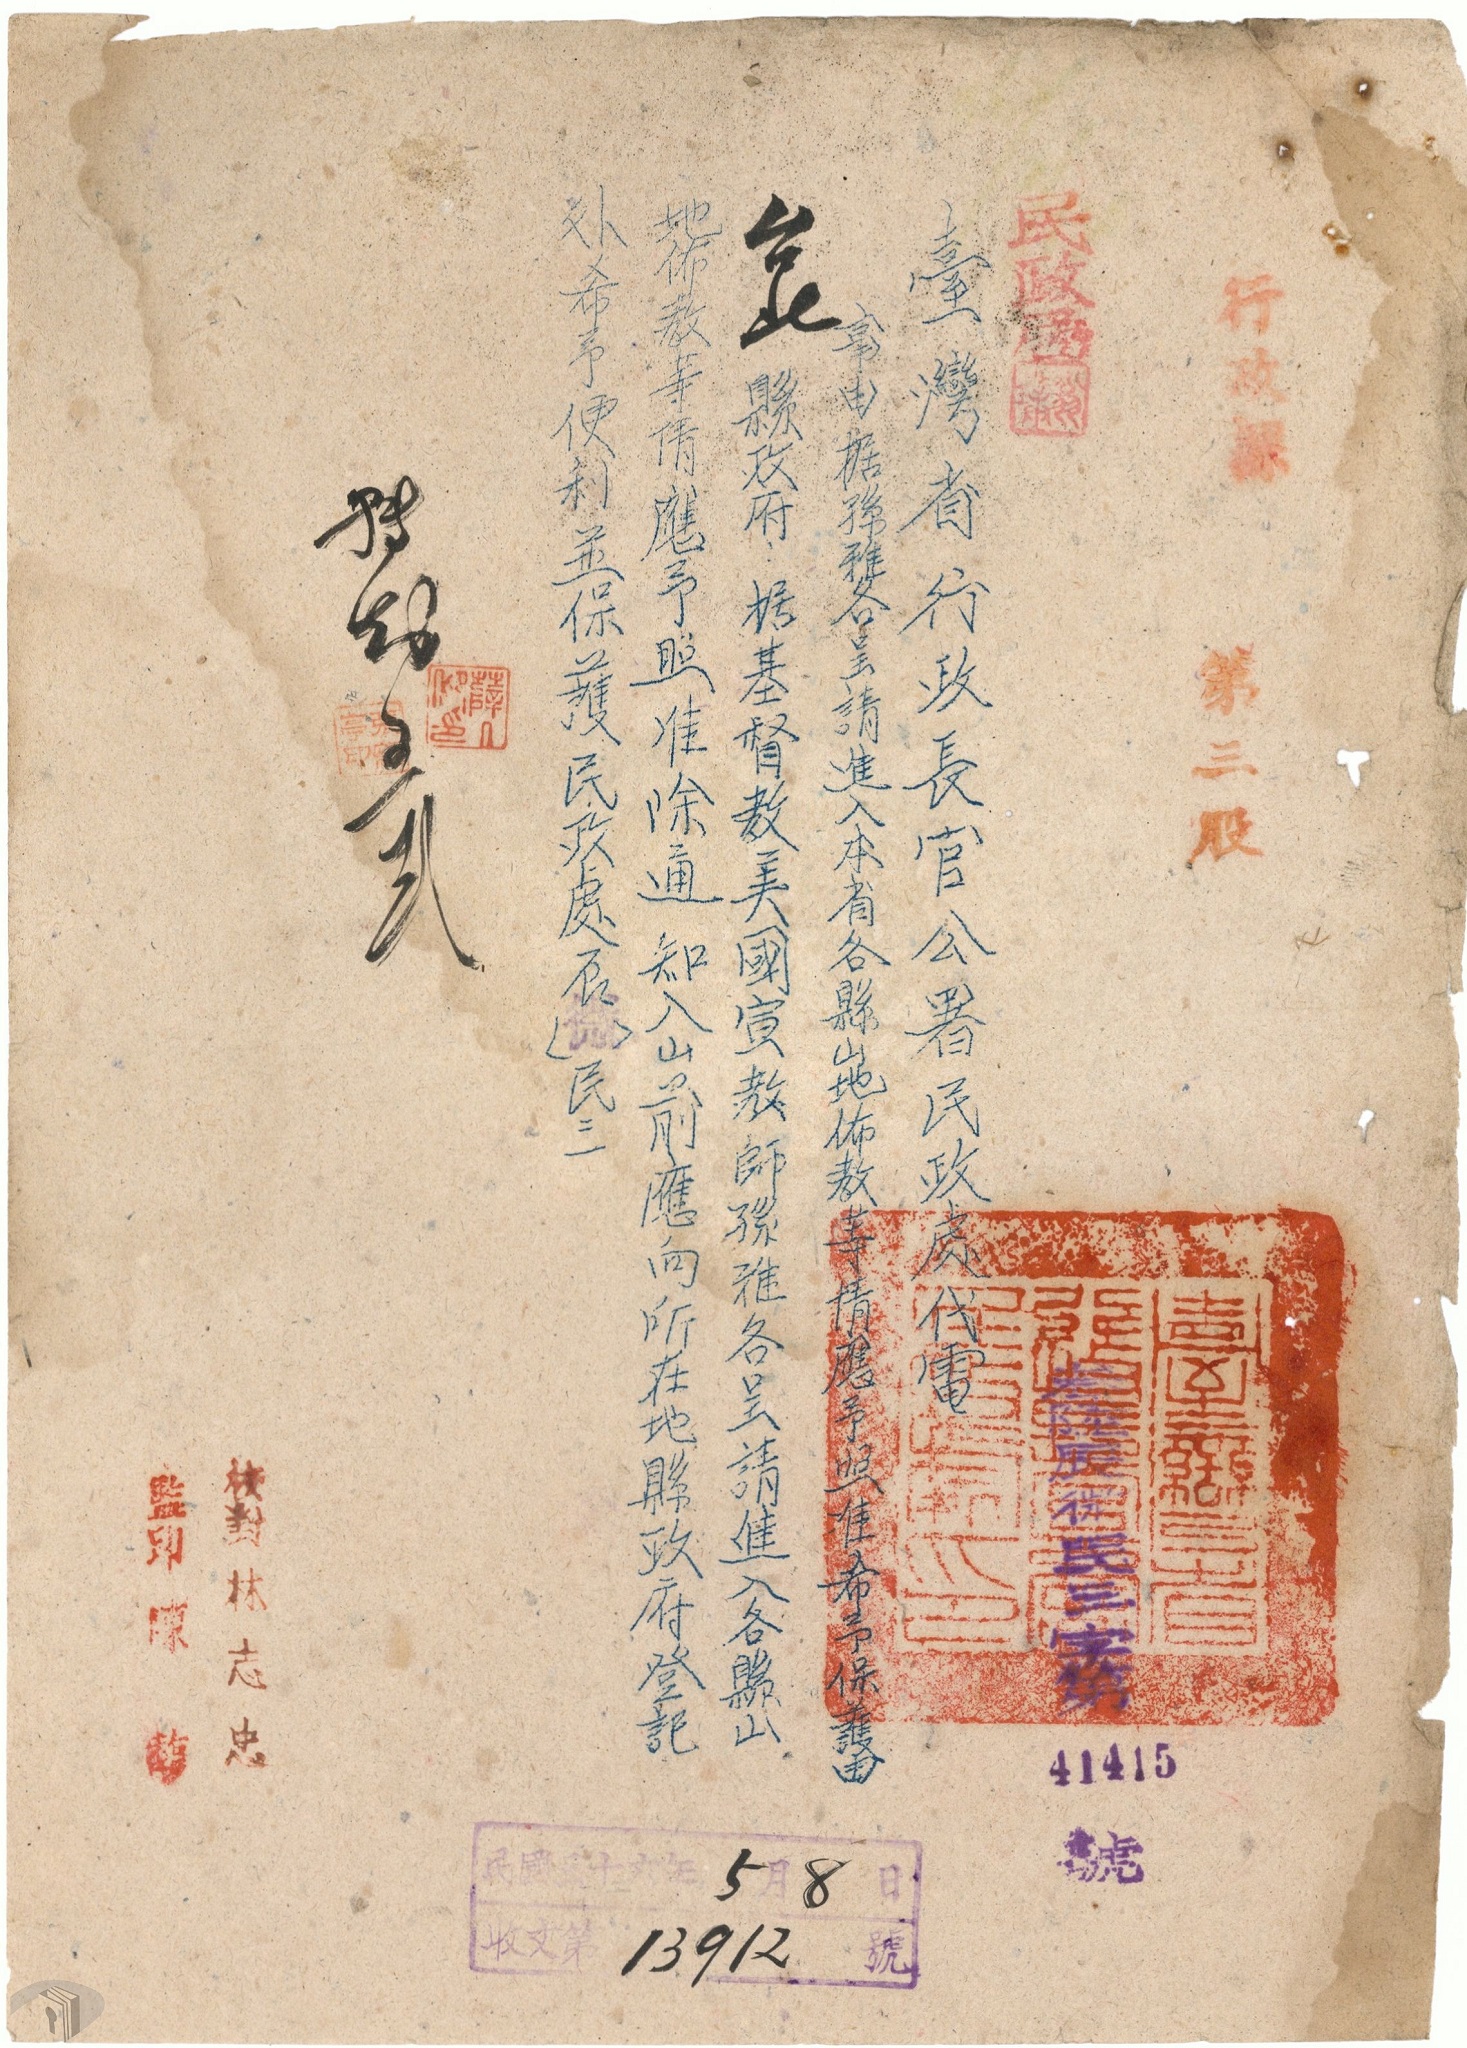 行政課
第三股
民政局
臺灣省行政長官公署民政處代電
41415
號
事由据孫雅各呈請進入本省各縣山地佈教等情應予照准希予保護由
台北縣政府：据基督教美國宣教師孫雅各呈請進入各縣山
地佈教等情應予照准除通知入山前應向所在地縣政府登記
外希予便利並保護民政處辰民三
校對林志忠
監印陳
民國三十六年5月8日
收文第13912號